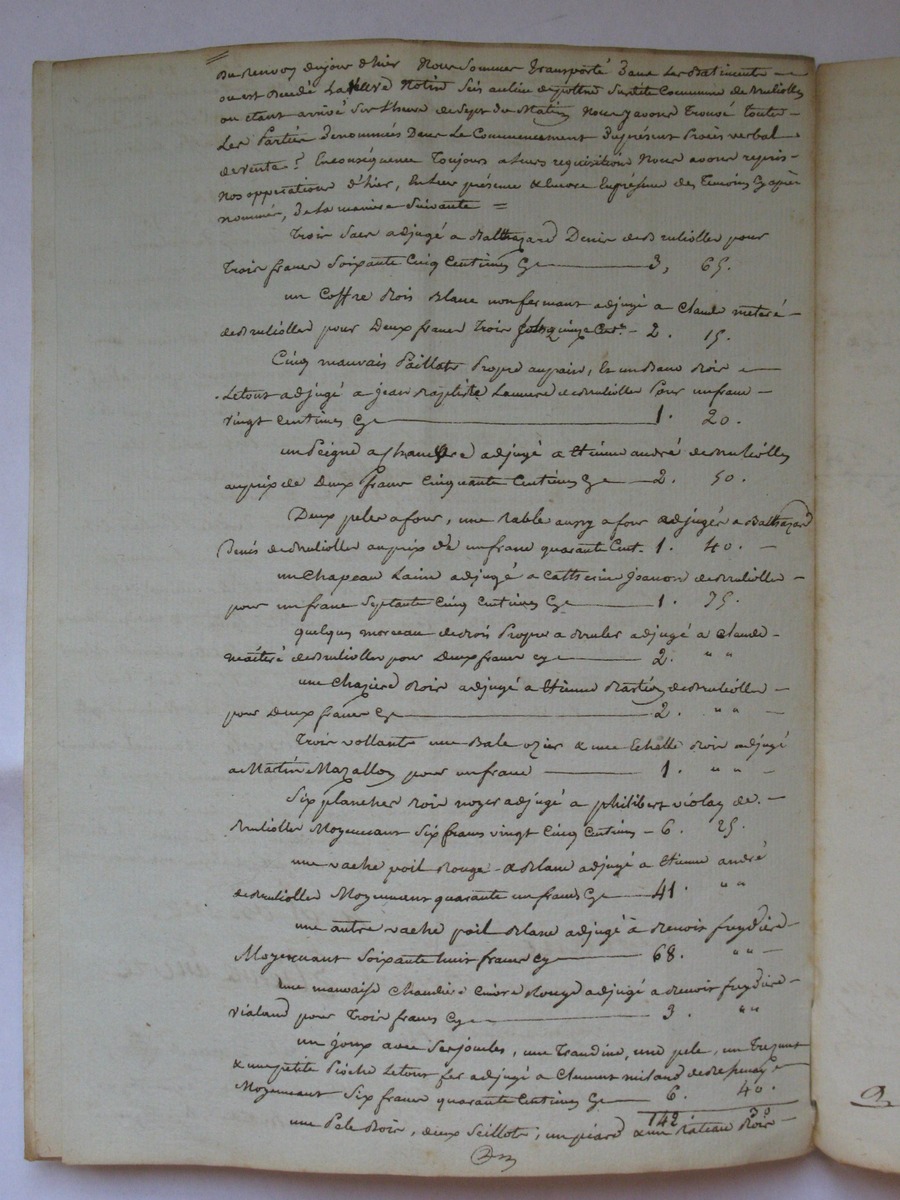 Du Renvoy du jour d'hier Nous Sommes transporté Dans Les Batiments
ou est Decédé La Notin Sus dite Commune de Brulioller
ou etant arrivé Sur l'heure de Sept du Matin, Nous y avons Trouvé toutes
Les Parties Denommés Dans Le Commencement Du présent Procès verbal
de vente ; En conséquence Toujours a leurs requisition Nous avons repris
Nos opperations d'hier, En leur présence & Encore En présence des Temoins Cy apres
nommés, De la maniere Suivante =
Trois Sacs adjugé a Balthazard Denis de Brulioller pour
Trois francs Soixante Cinq Centimes Cy 3, 65.
un Coffre Bois Blanc non fermant adjugé a Claude meteré
de Brulioller pour Deux francs quinze Cent. - 2. 15.
Cinq mauvais Paillats Propre au pain, & un Banc Bois
Le tout adjugé a Jean Baptiste de Brulioller Pour un franc
vingt Centimes Cy 1. 20.
un Peigne a Chanvre adjugé a Etienne andré de Brulioller
au prix de Deux francs Cinquante Centimes Cy 2. 50.
Deux peles a four, une Rable aussy a four adjugés a Balthazard
Denis de Brulioller au prix de un franc quarante Cent. 1. 40.
un Chapeau Laine adjugé a Catherine Jeannon de Brulioller
pour un franc Septante Cinq Centimes Cy 1. 75.
quelques morceau de Bois Propre a Bruler adjugé a Claude
meiteré de Brulioller pour Deux francs cy 2. " "
une Bois adjugé a Etienne de Brulioller
pour Deux francs Cy 2. " "
Trois vollants une Bale ozier & une Echelle Bois adjugé
a Martin Mazallon pour un franc 1. " "
Six planches Bois noyer adjugé a philibert violay de
Brulioller Moyennant Six francs vingt Cinq Centimes - 6. 25.
une vache poil Rouge & Blanc adjugé a Etienne andré
de Brulioller Moyennant quarante un francs Cy 41. " "
une autre vache poil Blanc adjugé à Benoit freydiere
Moyennant Soixante huit francs Cy 68. " "
une mauvaise Chaudiere Cuivre Rouge adjugé a Benoit freydiere
vialand pour Trois francs Cy 3. " "
un Joux avec Ses joucles, une Trandine, une pele, un
& une petite Pioche Le tout fer adjugé a Clement miland
Moyennant Six francs quarante Centimes Cy 6. 40.
142 30
une Pele Bois, deux Seillots, un & un Râteau Bois